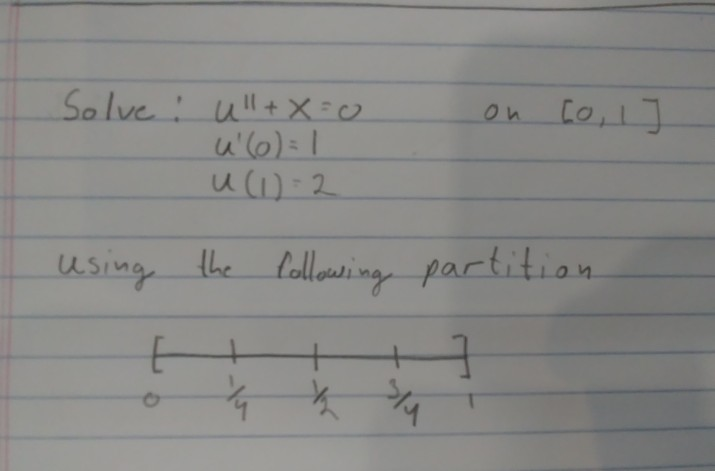 Solve: u''+x=0 on [0,1]
u'(0)=1
u(1)=2
using the following partition
0 1/4 1/2 3/4 1